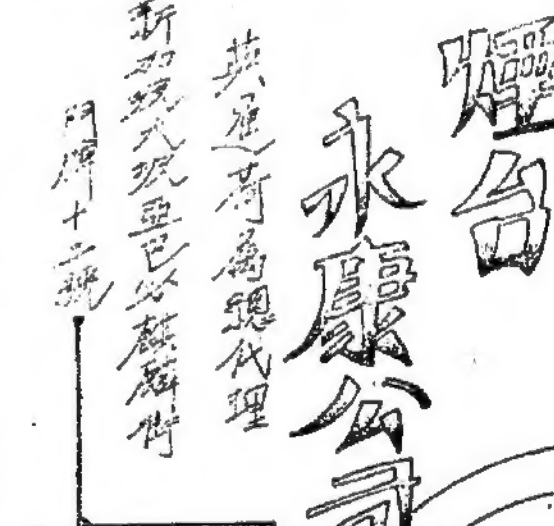 煙台
永康公司
英暹荷屬總代理
新加坡大坡亞巴必麒麟街
門牌十二號